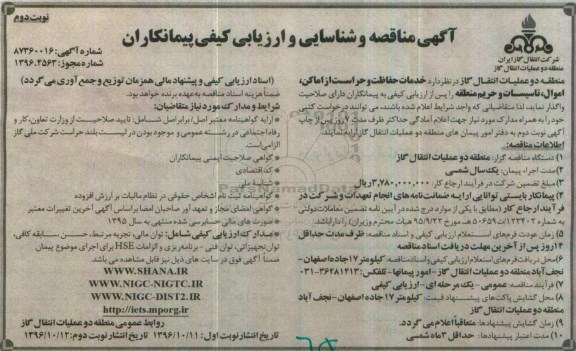 نوبت دوم
آگهی مناقصه و شناسایی و ارزیابی کیفی پیمانکاران
شماره آگهی: ۸۷۳۶۰۰۱۶
شماره مجوز: ۱۳۹۶.۴۵۶۳
شرکت انتقال گاز ایران
منطقه دو عملیات انتقال گاز
منطقـه دو عملیات انتقـال گاز در نظر دارد خدمات حفاظت و حراست از اماکن،
اموال، تاسیسات و حریم منطقه را پس از ارزیابی کیفی به پیمانکاران دارای صلاحیت
واگذار نماید، لذا متقاضیانی که واجد شرایط اعلام شده باشند، می توانند درخواست کتبی
خود را به همراه مدارک مورد نیاز جهت اعلام آمادگی حداکثر ظرف مدت ۷ روز پس از چاپ
آگهی نوبت دوم به دفتر امور پیمان های منطقه دو عملیات انتقال گاز ارایه نمایند.
اطلاعات مناقصه:
۱) دستگاه مناقصه گزار: منطقه دو عملیات انتقال گاز
۲) مدت اجراء پیمان: یک سال شمسی
۳) مبلغ تضمین شرکت در فرآیند ارجاع کار: ۳,۷۸۰,۰۰۰,۰۰۰ ریال
۴) پیمانکار بایستی توانایی ارایه ضمانت نامه های انجام تعهدات و شرکت در
فرآیند ارجاع کار (مطابق با یکی از موارد درج شده در آیین نامه تضمین معاملات دولتی
به شماره ۱۲۳۴۰۲/ت۵۰۶۵۹ هـ مورخ ۹۴/۹/۲۲ هیات محترم وزیران) را دارا باشد.
۵) زمان عودت فرم‌های استعلام ارزیابی کیفی و اسناد مناقصه: ظرف مدت حداقل
۱۴ روز پس از آخرین مهلت دریافت اسناد مناقصه
۶) محل دریافت فرم‌های استعلام ارزیابی کیفی و اسناد مناقصه: کیلومتر ۱۷ جاده اصفهان -
نجف آباد منطقه دو عملیات انتقال گاز - امور پیمانها - تلفکس: ۳۶۲۸۱۴۱۳-۰۳۱
۷) فرآیند مناقصه: عمومی - یک مرحله ای - ارزیابی کیفی
۸) محل گشایش پاکت های پیشنهاد قیمت: کیلومتر ۱۷ جاده اصفهان - نجف آباد
منطقه دو عملیات انتقال گاز
۹) زمان گشایش پیشنهادها: متعاقباً اعلام می گردد.
۱۰) مدت اعتبار پیشنهادها: حداقل ۳ ماه شمسی
(اسناد ارزیابی کیفی و پیشنهاد مالی همزمان توزیع و جمع آوری می گردد)
ضمناً هزینه اسناد مناقصه به عهده برنده خواهد بود.
شرایط و مدارک مورد نیاز متقاضیان:
* ارایه گواهینامه معتبر اصل/برابر اصل شامل: تایید صلاحیت از وزارت تعاون، کار و
رفاه اجتماعی در رشته عمومی و موجود بودن در لیست بلند حراست شرکت ملی گاز
الزامی است.
* گواهی صلاحیت ایمنی پیمانکاران
* کد اقتصادی
* شناسه ملی
* گواهینامه ثبت نام اشخاص حقوقی در نظام مالیات بر ارزش افزوده
* گواهی امضای مجاز و تعهد آور صاحبان امضا براساس آگهی آخرین تغییرات معتبر
* صورت های مالی حسابرسی شده منتهی به سال ۱۳۹۵
* مدارک ارزیابی کیفی شامل: توان مالی، تجربه مرتبط، حسن سابقه کافی،
توان تجهیزاتی، توان فنی - برنامه‌ریزی و الزامات HSE برای اجرای موضوع پیمان
ضمناً آگهی فوق در سایت های ذیل نیز قابل مشاهده می باشد.
WWW.SHANA.IR
WWW.NIGC-NIGTC.IR
WWW.NIGC-DIST2.IR
http://iets.mporg.ir
روابط عمومی منطقه دو عملیات انتقال گاز
تاریخ انتشار نوبت اول: ۱۳۹۶/۱۰/۱۱ تاریخ انتشار نوبت دوم: ۱۳۹۶/۱۰/۱۲